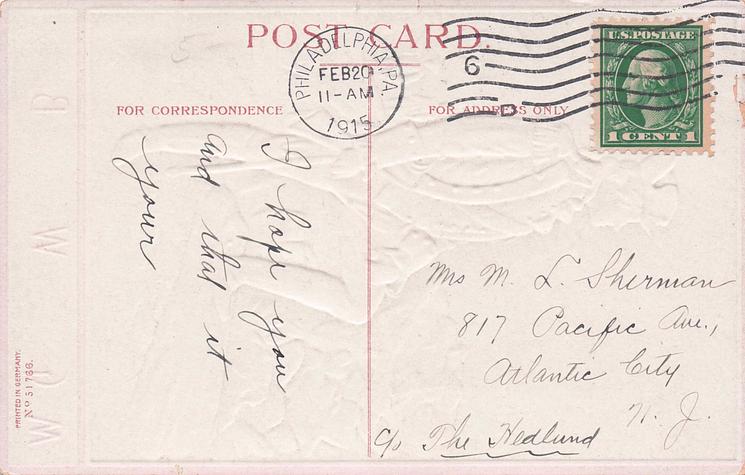 POST CARD.
PHILADELPHIA, PA.
FEB 20
11-AM
1915
6
D
U.S. POSTAGE
1 CENT 1
FOR CORRESPONDENCE
FOR ADDRESS ONLY
I hope you
and that it
your
Mrs M. L. Sherman
817 Pacific Ave.,
Atlantic City
N. J.
c/o The Hedlund
PRINTED IN GERMANY.
No 51766.